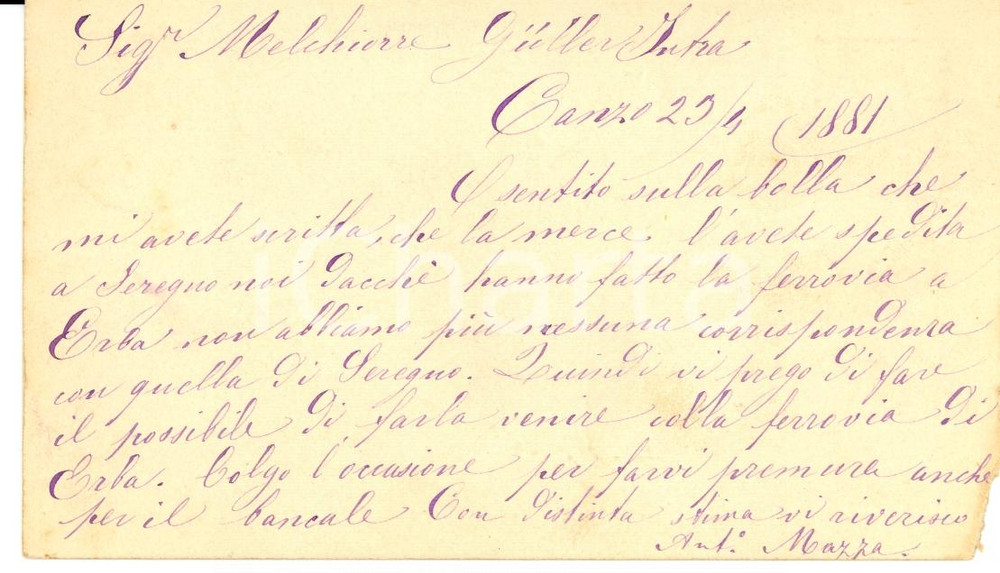 Sigr Melchiorre Güller Intra
Canzo 23/4 1881
O sentito sulla bolla che
mi avete scritta, che la merce l'avete spedita
a Seregno noi dacchè hanno fatto la ferrovia a
Erba non abbiamo più nessuna corrispondenza
con quella di Seregno. Quindi vi prego di fare
il possibile di farla venire colla ferrovia di
Erba. Colgo l'occasione per farvi premura anche
per il bancale Con distinta stima vi riverisco
Ant.o Mazza.